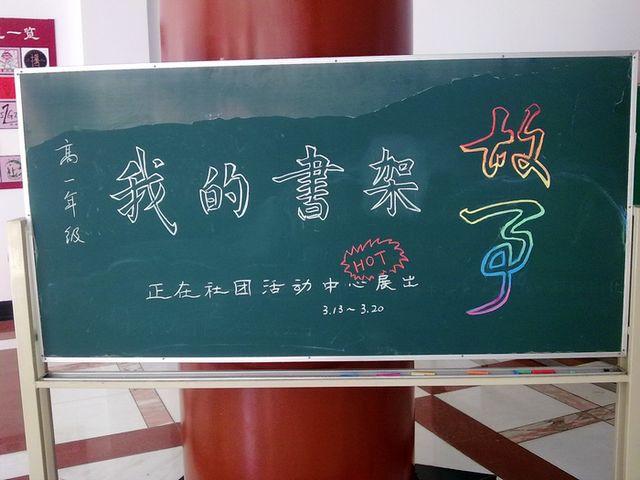 一览
高一年级
我的書架
故事
HOT
正在社团活动中心展出
3.13~3.20